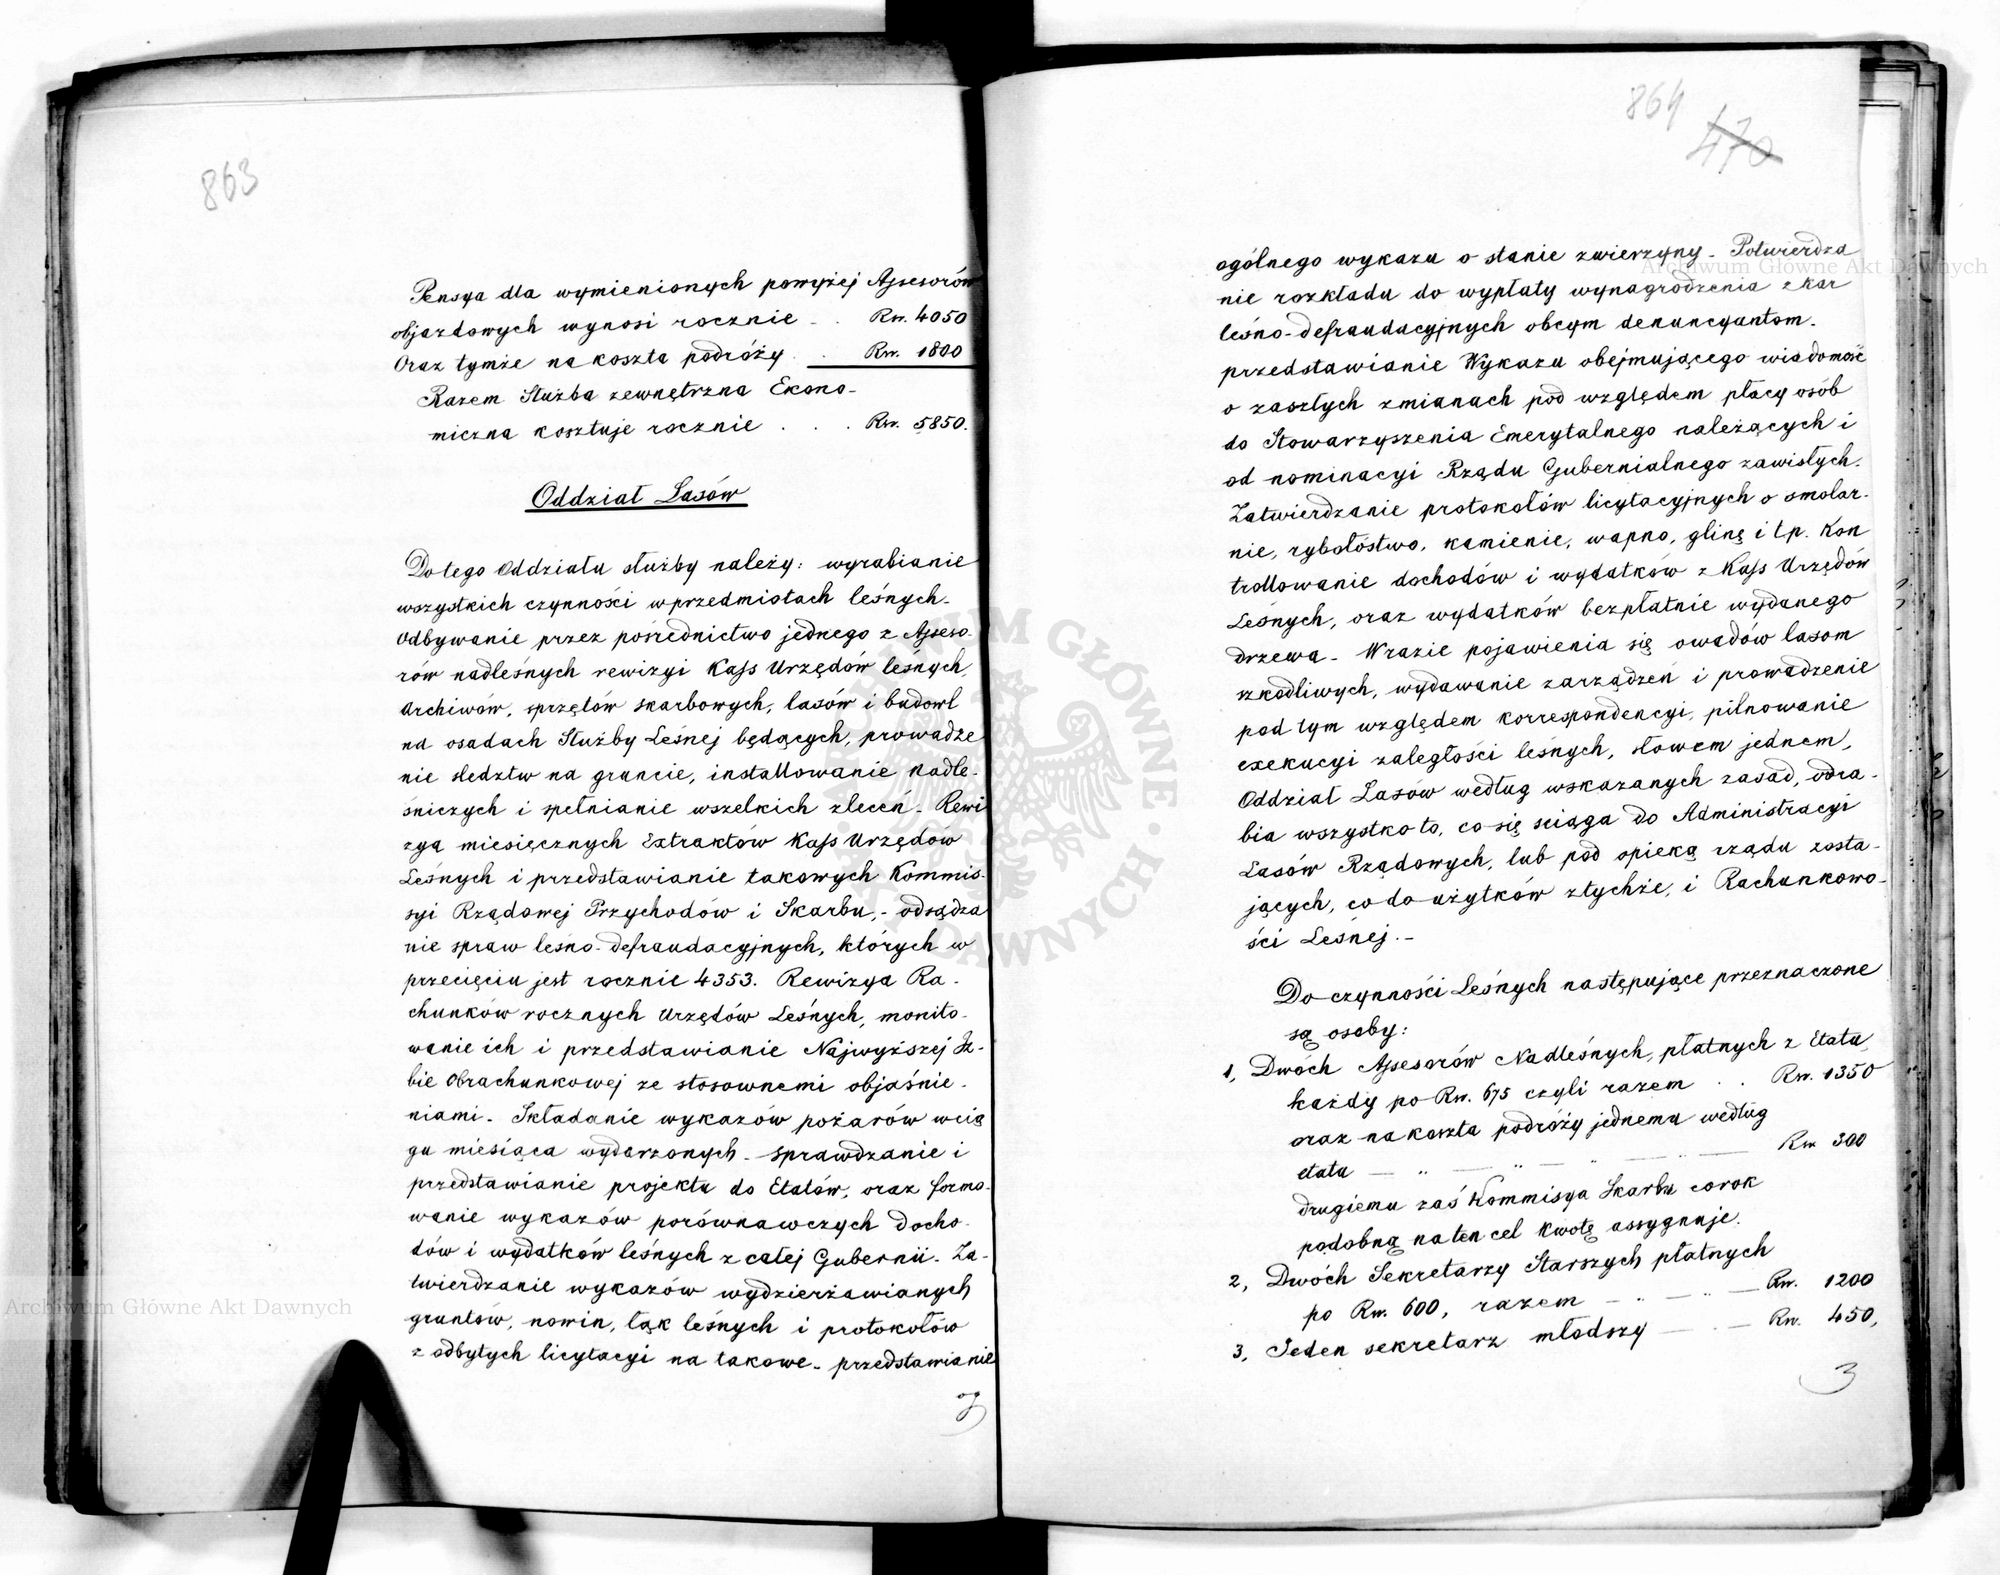 863
Pensya dla wymienionych powyżej Assesorów
objazdowych wynosi rocznie - . Rs. 4050
Oraz tymże na koszta podróży . . Rs. 1800
Razem Służba zewnętrzna Ekono-
miczna kosztuje rocznie . . . Rs. 5850.
Oddział Lasów
Do tego Oddziału służby należy: wyrabianie
wszystkich czynności w przedmiotach leśnych.
Odbywanie przez pośrednictwo jednego z Asseso-
rów nadleśnych rewizyi Kass Urzędów leśnych,
Archiwów, sprzętów skarbowych, lasów i budowl
na osadach Służby Leśnej będących, prowadze
nie śledztw na gruncie, installowanie Nadle-
śniczych i spełnianie wszelkich zleceń - Rewi
zya miesięcznych Extraktów Kass Urzędów
Leśnych i przedstawianie takowych Kommis-
syi Rządowej Przychodów i Skarbu, - odsądza
nie spraw leśno-defraudacyjnych, których w
przecięciu jest rocznie 4353. Rewizya Ra-
chunków rocznych Urzędów Leśnych, monito-
wanie ich i przedstawianie Najwyższej Iz-
bie Obrachunkowej ze stosownemi objaśnie-
niami. Składanie wykazów pożarów wcią
gu miesiąca wydarzonych - sprawdzanie i
przedstawianie projektu do Etatów, oraz formo-
wanie wykazów porównawczych docho-
dów i wydatków leśnych z całej Gubernii. Za-
twierdzanie wykazów wydzierżawianych
gruntów, nowin, łąk leśnych i protokołów
z odbytych licytacyi na takowe - przedstawianie
og
864
470
ogólnego wykazu o stanie zwierzyny - Potwierdza
nie rozkładu do wypłaty wynagrodzenia z kar
leśno-defraudacyjnych obcym denuncyantom.
przedstawianie Wykazu obejmującego wiadomość
o zaszłych zmianach pod względem płacy osób
do Stowarzyszenia Emerytalnego należących i
od nominacyi Rządu Gubernialnego zawisłych.
Zatwierdzanie protokołów licytacyjnych o smolar-
nie, rybołóstwo, kamienie, wapno, glinę i t p. Kon
trollowanie dochodów i wydatków z Kass Urzędów
Leśnych, oraz wydatków bezpłatnie wydanego
drzewa - Wrazie pojawienia się owadów lasom
szkodliwych, wydawanie zarządzeń i prowadzenie
pod tym względem korrespondencyi, pilnowanie
exekucyi zaległości leśnych, słowem jednem,
Oddział Lasów według wskazanych zasad, odra-
bia wszystko to, co się ściąga do Administracyi
Lasów Rządowych, lub pod opieką rządu zosta-
jących, co do użytków z tychże, i Rachunkowo-
ści Leśnej. -
Do czynności Leśnych następujące przeznaczone
są osoby:
1, Dwóch Assesorów Nadleśnych, płatnych z Etatu
każdy po Rs. 675 czyli razem . . Rs. 1350
oraz na koszta podróży jednemu według
etatu — " — " — " — Rs. 300
drugiemu zaś Kommisya Skarbu corok
podobną na ten cel kwotę assygnuje.
2, Dwóch Sekretarzy Starszych płatnych
po Rs. 600, razem — " — " — Rs. 1200
3, Jeden sekretarz młodszy — " — Rs. 450,
3
Archiwum Główne Akt Dawnych
Archiwum Główne Akt Dawnych